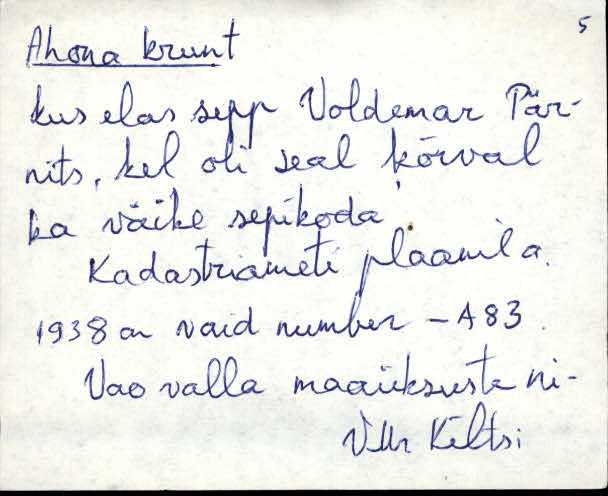 5
Ahona krunt
kus elas sepp Voldemar Pär-
nits, kel oli seal kõrval
ka väike sepikoda
Kadastriameti plaanil a.
1938 on vaid number - A83.
Vao valla maaüksuste ni-
VMr Kiltsi